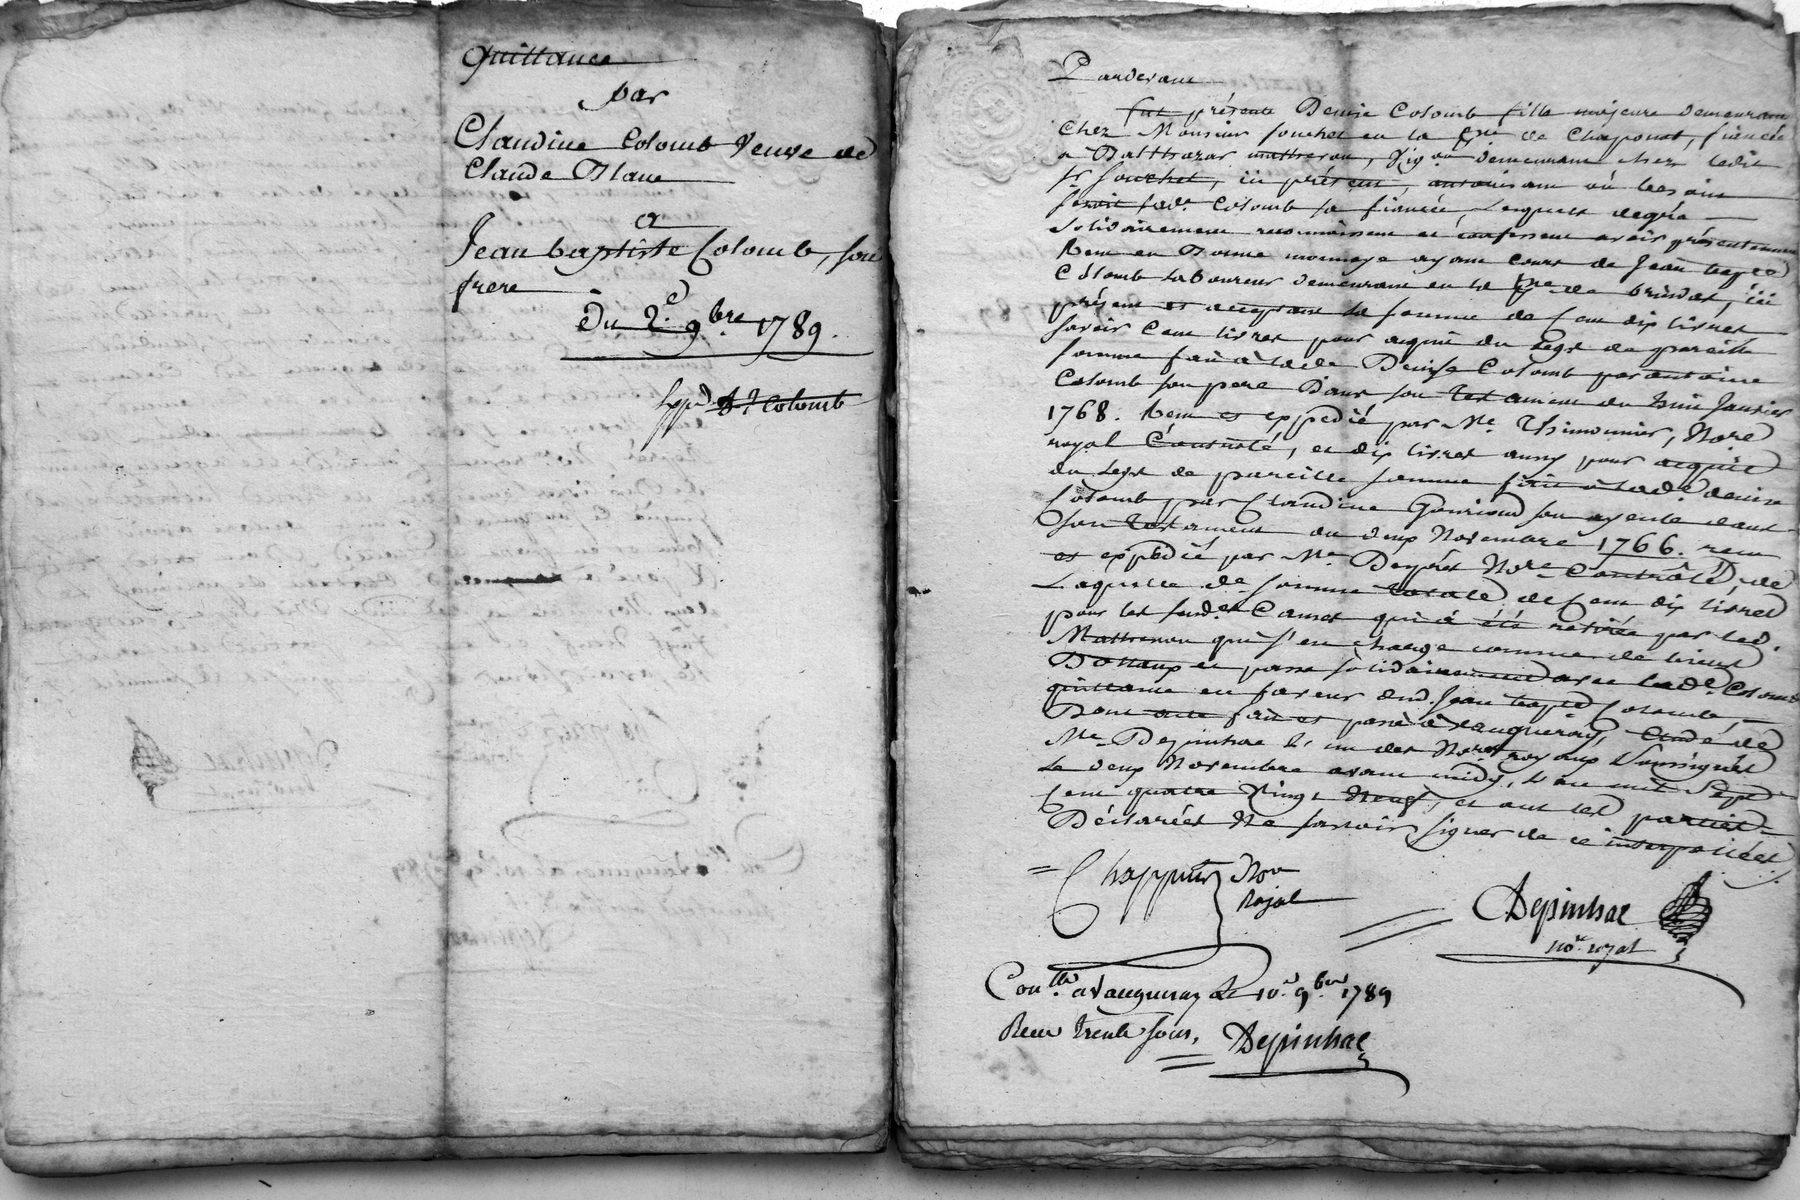 Quittance
par
Claudine Colomb Veuve de
Claude Blanc
a
Jean baptiste Colomb, son
frere
Du 2.e 9bre 1789.
Exp.é à Jn Colomb
Pardevant
fut présente Denise Colomb fille majeure demeurant
Chez Monsieur souchet en la psse de Chaponost, fiancée
a Balthazar mattheron, Vigon demeurant chez ledit
sr souchet, ici présent, autorisant où besoin
seroit lade Colomb sa fiancée, Lesquels degrés
solidairement reconnoissent et confessent avoir présentement
Reçu en Bonne monnoye ayant cours de Jean bapte
Colomb Laboureur demeurant en la psse de brindas, ici
présent et acceptant la somme de Cent dix livres
savoir Cent livres pour acquit du Legs de pareille
somme fait à lade Denise Colomb par antoine
Colomb son pere Dans son testament du huit Janvier
1768. Reçu et expedié par Me Thimonnier, Nore
royal Controllé, et dix livres aussy pour acquit
du Legs de pareille somme fait à lade denise
Colomb par Claudine son ayeule dans
son testament du deux Novembre 1766. reçu
et expedié par Me Nore Controllé, de
Laquelle de somme totale de Cent dix livres
pour les susdes Causes qui à été retirée par led.
Mattheron qui s'en charge comme de biens
Dotaux et passe solidairement avec lade Colomb
quittance en faveur dud. Jean bapte Colomb,
Dont acte fait et passé à Vaugneray, Etude de
Me Depinhac L'un des Nores royaux soussignés
Le deux Novembre avant midy, L'an mil sept
Cent quatre Vingt Neuf, et ont les parties
Déclarées Ne savoir signer de ce interpellées
Chappuis Nore
Royal
Depinhac
nore royal
Conllé a Vaugneray le 10.e 9bre 1789
Reçu trente sous, Depinhac